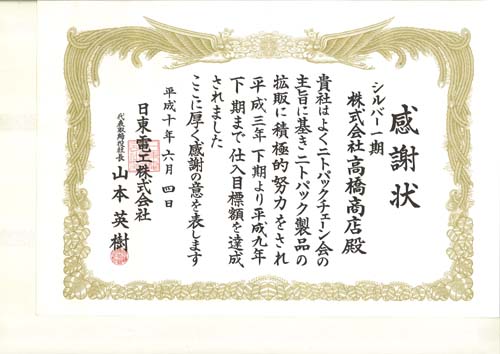 感謝状
シルバー一期
株式会社高橋商店殿
貴社はよくニトパックチェーン会の
主旨に基きニトパック製品の
拡販に積極的努力をされ
平成三年下期より平成九年
下期まで仕入目標額を達成
されました
ここに厚く感謝の意を表します
平成十年六月四日
日東電工株式会社
代表取締役社長 山本英樹